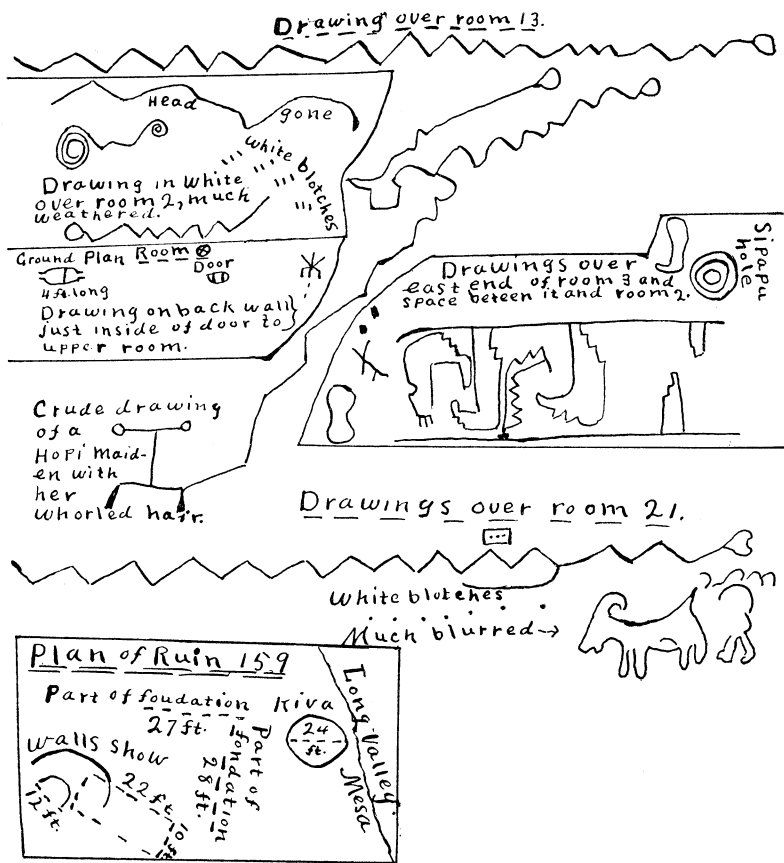 Drawing over room 13.
Head gone
white blotches
Drawing in white
over room 2, much
weathered.
Ground Plan Room
Door
4 ft. long
Drawing on back wall
just inside of door to
upper room.
Sipapu
hole
Drawings over
east end of room 3 and
space beteen it and room 2.
Crude drawing
of a
Hopi maid-
en with
her
whorled hair.
Drawings over room 21.
White blotches
Much blurred→
Plan of Ruin 159
Part of foudation
27 ft.
Kiva
24
ft.
Long Valley.
Mesa
Part of
fondation
28 ft.
walls show
22 ft.
12 ft.